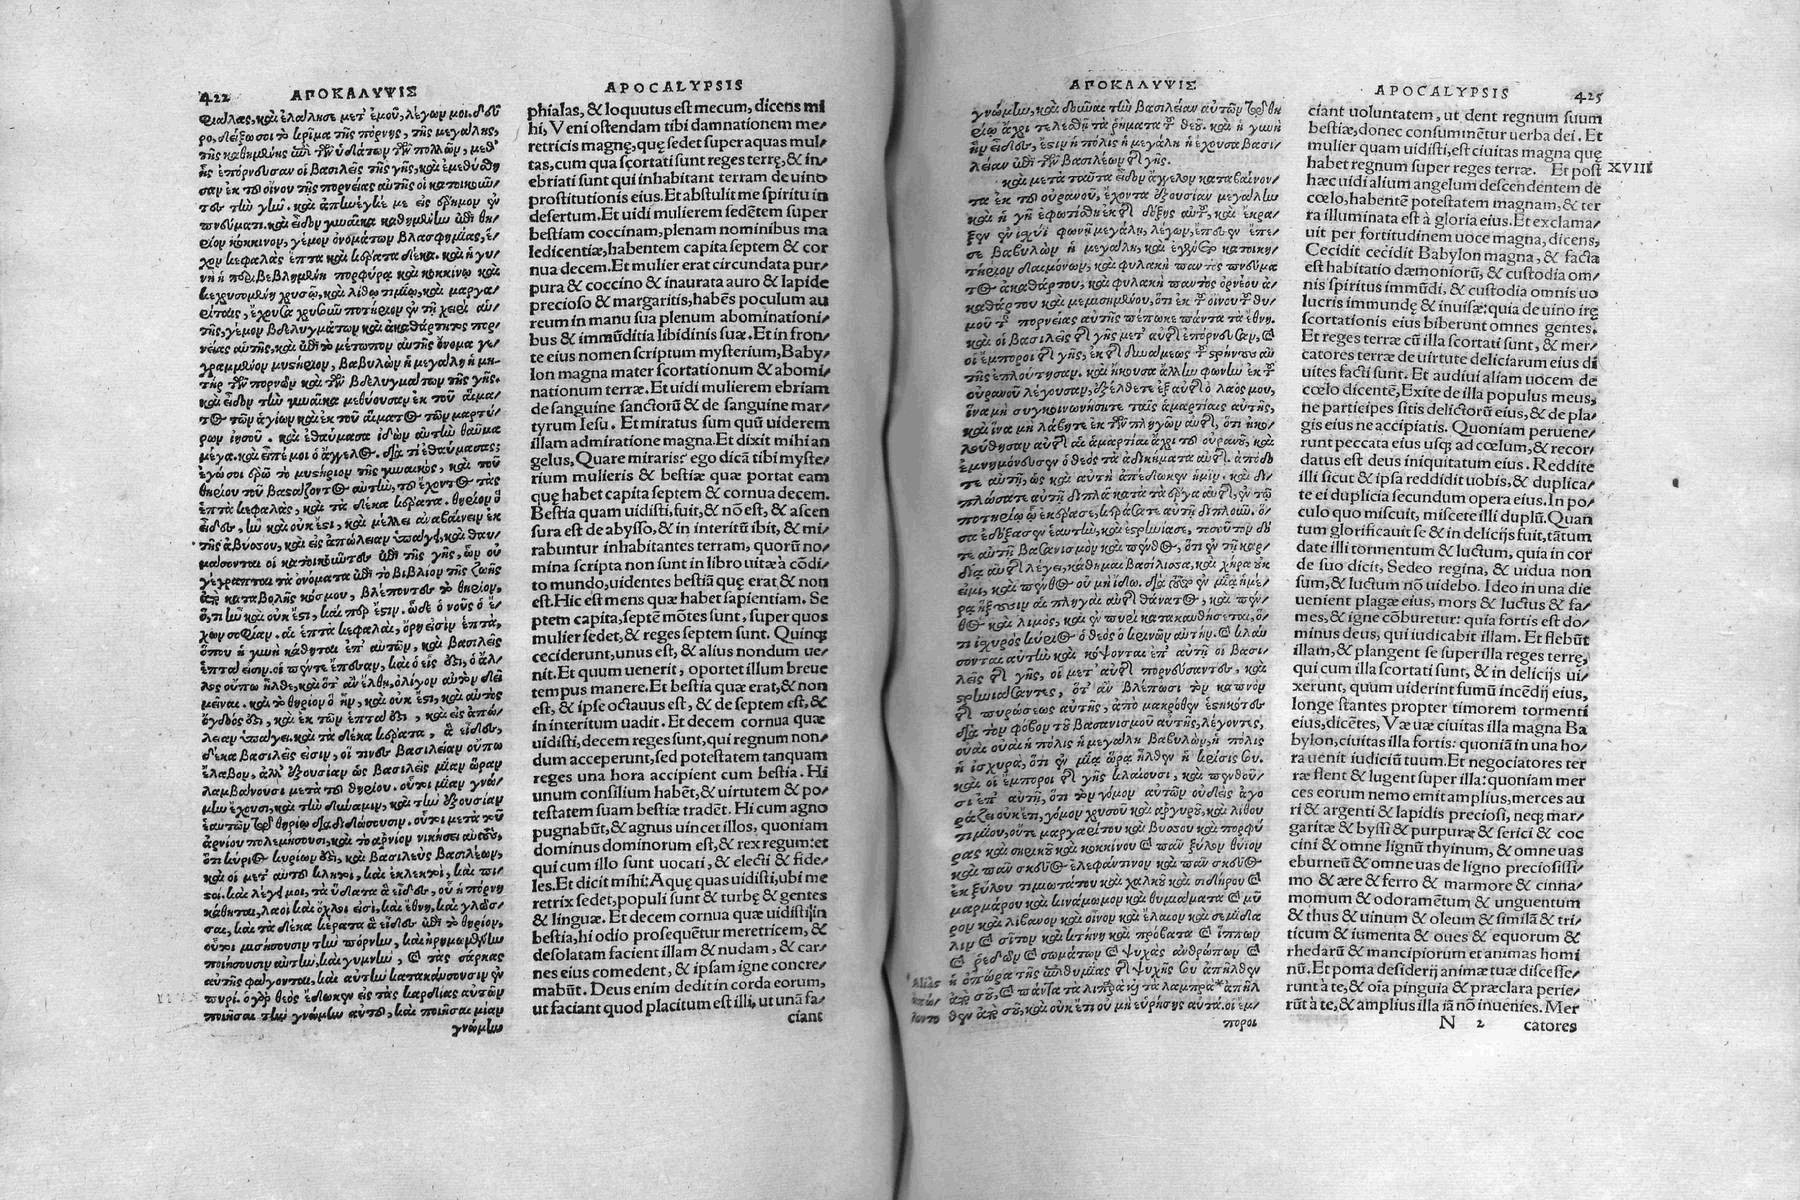 422
ΑΠΟΚΑΛΥΨΙΣ
φιάλας, καὶ ἐλάλησε μετ' ἐμοῦ, λέγων μοι. δεῦ
ρο, δείξω σοι τὸ κρῖμα τῆς πόρνης, τῆς μεγάλης,
τῆς καθημένης ἐπὶ τῶν ὑδάτων τῶν πολλῶν, μεθ'
ἧς ἐπόρνευσαν οἱ βασιλεῖς τῆς γῆς, καὶ ἐμεθύσθη
σαν ἐκ τοῦ οἴνου τῆς πορνείας αὐτῆς οἱ κατοικοῦν-
τες τὴν γῆν. καὶ ἀπήνεγκέ με εἰς ἔρημον ἐν
πνεύματι. καὶ εἶδον γυναῖκα καθημένην ἐπὶ θη-
ρίον κόκκινον, γέμον ὀνομάτων βλασφημίας, ἔ-
χον κεφαλὰς ἑπτὰ καὶ κέρατα δέκα. καὶ ἡ γυ-
νὴ ἡ περιβεβλημένη πορφύρᾳ καὶ κοκκίνῳ καὶ
κεχρυσωμένη χρυσῷ, καὶ λίθῳ τιμίῳ, καὶ μαργα-
ρίταις, ἔχουσα χρυσοῦν ποτήριον ἐν τῇ χειρὶ αὐ-
τῆς, γέμον βδελυγμάτων καὶ ἀκαθάρτητος πορ-
νείας αὐτῆς, καὶ ἐπὶ τὸ μέτωπον αὐτῆς ὄνομα γε-
γραμμένον μυστήριον, βαβυλὼν ἡ μεγάλη ἡ μή-
τηρ τῶν πορνῶν καὶ τῶν βδελυγμάτων τῆς γῆς.
καὶ εἶδον τὴν γυναῖκα μεθύουσαν ἐκ τοῦ αἵμα-
τος τῶν ἁγίων καὶ ἐκ τοῦ αἵματος τῶν μαρτύ-
ρων ἰησοῦ. καὶ ἐθαύμασα ἰδὼν αὐτὴν θαῦμα
μέγα. καὶ εἶπέ μοι ὁ ἄγγελος. διὰ τί ἐθαύμασας;
ἐγώ σοι ἐρῶ τὸ μυστήριον τῆς γυναικός, καὶ τοῦ
θηρίου τοῦ βαστάζοντος αὐτὴν, τοῦ ἔχοντος τὰς
ἑπτὰ κεφαλὰς, καὶ τὰ δέκα κέρατα. θηρίον ὃ
εἶδες, ἦν καὶ οὐκ ἔστι, καὶ μέλλει ἀναβαίνειν ἐκ
τῆς ἀβύσσου, καὶ εἰς ἀπώλειαν ὑπάγειν, καὶ θαυ-
μάσονται οἱ κατοικοῦντες ἐπὶ τῆς γῆς, ὧν οὐ
γέγραπται τὰ ὀνόματα ἐπὶ τὸ βιβλίον τῆς ζωῆς
ἀπὸ καταβολῆς κόσμου, βλέποντες τὸ θηρίον,
ὅ, τι ἦν καὶ οὐκ ἔστι, καί περ ἔστιν. ὧδε ὁ νοῦς ὁ ἔ-
χων σοφίαν. αἱ ἑπτὰ κεφαλαὶ, ὄρη εἰσὶν ἑπτὰ,
ὅπου ἡ γυνὴ κάθηται ἐπ' αὐτῶν, καὶ βασιλεῖς
ἑπτά εἰσιν. οἱ πέντε ἔπεσαν, καὶ ὁ εἷς ἐστι, ὁ ἄλ-
λος οὔπω ἦλθε, καὶ ὅτ' ἂν ἔλθῃ, ὀλίγον αὐτὸν δεῖ
μεῖναι. καὶ τὸ θηρίον ὃ ἦν, καὶ οὐκ ἔστι, καὶ αὐτὸς
ὄγδοός ἐστι, καὶ ἐκ τῶν ἑπτά ἐστι, καὶ εἰς ἀπώ-
λειαν ὑπάγει. καὶ τὰ δέκα κέρατα, ἃ εἶδες,
δέκα βασιλεῖς εἰσιν, οἵ τινες βασιλείαν οὔπω
ἔλαβον, ἀλλ' ἐξουσίαν ὡς βασιλεῖς μίαν ὥραν
λαμβάνουσι μετὰ τοῦ θηρίου. οὗτοι μίαν γνώ-
μην ἔχουσι, καὶ τὴν δύναμιν, καὶ τὴν ἐξουσίαν
ἑαυτῶν τῷ θηρίῳ διαδιδώσουσιν. οὗτοι μετὰ τοῦ
ἀρνίου πολεμήσουσι, καὶ τὸ ἀρνίον νικήσει αὐτοὺς,
ὅτι κύριος κυρίων ἐστὶ, καὶ βασιλεὺς βασιλέων,
καὶ οἱ μετ' αὐτοῦ κλητοὶ, καὶ ἐκλεκτοὶ, καὶ πι-
στοί. καὶ λέγει μοι, τὰ ὕδατα ἃ εἶδες, οὗ ἡ πόρνη
κάθηται, λαοὶ καὶ ὄχλοι εἰσὶ, καὶ ἔθνη, καὶ γλῶσ-
σαι, καὶ τὰ δέκα κέρατα ἃ εἶδες ἐπὶ τὸ θηρίον,
οὗτοι μισήσουσιν τὴν πόρνην, καὶ ἠρημωμένην
ποιήσουσιν αὐτὴν, καὶ γυμνὴν, καὶ τὰς σάρκας
αὐτῆς φάγονται, καὶ αὐτὴν κατακαύσουσιν ἐν
πυρί. ὁ γὰρ θεὸς ἔδωκεν εἰς τὰς καρδίας αὐτῶν
ποιῆσαι τὴν γνώμην αὐτοῦ, καὶ ποιῆσαι μίαν
γνώμην
APOCALYPSIS
phialas, & loquutus est mecum, dicens mi
hi, Veni ostendam tibi damnationem me/
retricis magnę, quę sedet super aquas mul/
tas, cum qua scortati sunt reges terrę, & in/
ebriati sunt qui inhabitant terram de uino
prostitutionis eius. Et abstulit me spiritu in
desertum. Et uidi mulierem sedētem super
bestiam coccinam, plenam nominibus ma
ledicentiæ, habentem capita septem & cor
nua decem. Et mulier erat circundata pur/
pura & coccino & inaurata auro & lapide
precioso & margaritis, habēs poculum au
reum in manu sua plenum abominationi/
bus & immūditia libidinis suæ. Et in fron/
te eius nomen scriptum mysterium, Baby/
lon magna mater scortationum & abomi/
nationum terræ. Et uidi mulierem ebriam
de sanguine sanctorū & de sanguine mar/
tyrum Iesu. Et miratus sum quū uiderem
illam admiratione magna. Et dixit mihi an
gelus, Quare miraris? ego dicā tibi myste/
rium mulieris & bestiæ quæ portat eam
quę habet capita septem & cornua decem.
Bestia quam uidisti, fuit, & nō est, & ascen
sura est de abysso, & in interitū ibit, & mi/
rabuntur inhabitantes terram, quorū no/
mina scripta non sunt in libro uitæ à cōdi/
to mundo, uidentes bestiā quę erat & non
est. Hic est mens quæ habet sapientiam. Se
ptem capita, septē mōtes sunt, super quos
mulier sedet, & reges septem sunt. Quinq;
ceciderunt, unus est, & alius nondum ue/
nit. Et quum uenerit, oportet illum breue
tempus manere. Et bestia quæ erat, & non
est, & ipse octauus est, & de septem est, &
in interitum uadit. Et decem cornua quæ
uidisti, decem reges sunt, qui regnum non/
dum acceperunt, sed potestatem tanquam
reges una hora accipient cum bestia. Hi
unum consilium habēt, & uirtutem & po/
testatem suam bestiæ tradēt. Hi cum agno
pugnabūt, & agnus uincet illos, quoniam
dominus dominorum est, & rex regum: et
qui cum illo sunt uocati, & electi & fide/
les. Et dicit mihi: Aquę quas uidisti, ubi me
retrix sedet, populi sunt & turbę & gentes
& linguæ. Et decem cornua quæ uidisti in
bestia, hi odio prosequētur meretricem, &
desolatam facient illam & nudam, & car/
nes eius comedent, & ipsam igne concre/
mabūt. Deus enim dedit in corda eorum,
ut faciant quod placitum est illi, ut unā fa/
ciant
ΑΠΟΚΑΛΥΨΙΣ
γνώμην, καὶ δοῦναι τὴν βασιλείαν αὐτῶν τῷ θη
ρίῳ ἄχρι τελεσθῇ τὰ ῥήματα τοῦ θεοῦ. καὶ ἡ γυνὴ
ἣν εἶδες, ἔστιν ἡ πόλις ἡ μεγάλη ἡ ἔχουσα βασι-
λείαν ἐπὶ τῶν βασιλέων τῆς γῆς.
καὶ μετὰ ταῦτα εἶδον ἄγγελον καταβαίνον-
τα ἐκ τοῦ οὐρανοῦ, ἔχοντα ἐξουσίαν μεγάλην
καὶ ἡ γῆ ἐφωτίσθη ἐκ τῆς δόξης αὐτοῦ, καὶ ἔκρα-
ξεν ἐν ἰσχύϊ φωνῇ μεγάλῃ, λέγων, ἔπεσεν ἔπε-
σε βαβυλὼν ἡ μεγάλη, καὶ ἐγένετο κατοικη-
τήριον δαιμόνων, καὶ φυλακὴ παντὸς πνεύμα
τος ἀκαθάρτου, καὶ φυλακὴ παντὸς ὀρνέου ἀ-
καθάρτου καὶ μεμισημένου, ὅτι ἐκ τοῦ οἴνου τοῦ θυ-
μοῦ τῆς πορνείας αὐτῆς πέπωκε πάντα τὰ ἔθνη.
καὶ οἱ βασιλεῖς τῆς γῆς μετ' αὐτῆς ἐπόρνευσαν, καὶ
οἱ ἔμποροι τῆς γῆς, ἐκ τῆς δυνάμεως τοῦ στρήνους αὐ
τῆς ἐπλούτησαν. καὶ ἤκουσα ἄλλην φωνὴν ἐκ τοῦ
οὐρανοῦ λέγουσαν, ἐξέλθετε ἐξ αὐτῆς ὁ λαός μου,
ἵνα μὴ συγκοινωνήσητε ταῖς ἁμαρτίαις αὐτῆς,
καὶ ἵνα μὴ λάβητε ἐκ τῶν πληγῶν αὐτῆς, ὅτι ἠκο-
λούθησαν αὐτῆς αἱ ἁμαρτίαι ἄχι τοῦ οὐρανοῦ, καὶ
ἐμνημόνευσεν ὁ θεὸς τὰ ἀδικήματα αὐτῆς. ἀπόδο
τε αὐτῇ, ὡς καὶ αὐτὴ ἀπέδωκεν ὑμῖν. καὶ δι-
πλώσατε αὐτῇ διπλᾶ κατὰ τὰ ἔργα αὐτῆς, ἐν τῷ
ποτηρίῳ ᾧ ἐκέρασε, κεράσατε αὐτῇ διπλοῦν. ὅ-
σα ἐδόξασεν ἑαυτὴν, καὶ ἐστρηνίασε, τοσοῦτον δό
τε αὐτῇ βασανισμὸν καὶ πένθος, ὅτι ἐν τῇ καρ-
δίᾳ αὐτῆς λέγει, κάθημαι βασίλισσα, καὶ χήρα οὐκ
εἰμὶ, καὶ πένθος οὐ μὴ ἴδω. διὰ τοῦτο ἐν μίᾳ ἡμέ-
ρᾳ ἥξουσιν αἱ πληγαὶ αὐτῆς θάνατος, καὶ πέν-
θος καὶ λιμὸς, καὶ ἐν πυρὶ κατακαυθήσεται, ὅ-
τι ἰσχυρὸς κύριος ὁ θεὸς ὁ κρίνων αὐτήν. καὶ κλαύ
σονται αὐτὴν καὶ κόψονται ἐπ' αὐτῇ οἱ βασι-
λεῖς τῆς γῆς, οἱ μετ' αὐτῆς πορνεύσαντες, καὶ
στρηνιάσαντες, ὅτ' ἂν βλέπωσι τὸν καπνὸν
τῆς πυρώσεως αὐτῆς, ἀπὸ μακρόθεν ἑστηκότες
διὰ τὸν φόβον τοῦ βασανισμοῦ αὐτῆς, λέγοντες,
οὐαὶ οὐαὶ ἡ πόλις ἡ μεγάλη βαβυλὼν, ἡ πόλις
ἡ ἰσχυρὰ, ὅτι ἐν μίᾳ ὥρᾳ ἦλθεν ἡ κρίσις σου.
καὶ οἱ ἔμποροι τῆς γῆς κλαίουσι, καὶ πενθοῦ-
σι ἐπ' αὐτῇ, ὅτι τὸν γόμον αὐτῶν οὐδεὶς ἀγο
ράζει οὐκ ἔτι, γόμον χρυσοῦ καὶ ἀργυροῦ, καὶ λίθου
τιμίου, οὔτε μαργαρίτου καὶ βύσσου καὶ πορφύ
ρας καὶ σηρικοῦ καὶ κοκκίνου καὶ πᾶν ξύλον θύϊον
καὶ πᾶν σκεῦος ἐλεφάντινον καὶ πᾶν σκεῦος
ἐκ ξύλου τιμιωτάτου καὶ χαλκοῦ καὶ σιδήρου καὶ
μαρμάρου καὶ κινάμωμον καὶ θυμιάματα καὶ μῦ
ρον καὶ λίβανον καὶ οἶνον καὶ ἔλαιον καὶ σεμίδα
λιν καὶ σῖτον καὶ κτήνη καὶ πρόβατα καὶ ἵππων
καὶ ῥεδῶν καὶ σωμάτων καὶ ψυχὰς ἀνθρώπων καὶ
ἡ ὀπώρα τῆς ἐπιθυμίας τῆς ψυχῆς σου ἀπῆλθεν
ἀπὸ σοῦ, καὶ πάντα τὰ λιπαρὰ καὶ τὰ λαμπρὰ* ἀπῆλ
θεν ἀπὸ σοῦ, καὶ οὐκ ἔτι οὐ μὴ εὑρήσῃς αὐτά. οἱ ἔμ-
ποροι
Aliâs
ἀπώ
λοντο
APOCALYPSIS
425
ciant uoluntatem, ut dent regnum suum
bestiæ, donec consummētur uerba dei. Et
mulier quam uidisti, est ciuitas magna quę
habet regnum super reges terræ. Et post
XVIII
hæc uidi alium angelum descendentem de
cœlo, habentē potestatem magnam, & ter
ra illuminata est à gloria eius. Et exclama/
uit per fortitudinem uoce magna, dicens,
Cecidit cecidit Babylon magna, & facta
est habitatio dæmoniorū, & custodia om/
nis spiritus immūdi, & custodia omnis uo
lucris immundę & inuisæ: quia de uino irę
scortationis eius biberunt omnes gentes.
Et reges terræ cū illa scortati sunt, & mer/
catores terræ de uirtute deliciarum eius di
uites facti sunt. Et audiui aliam uocem de
cœlo dicentē, Exite de illa populus meus,
ne participes sitis delictorū eius, & de pla/
gis eius ne accipiatis. Quoniam peruene/
runt peccata eius usq; ad cœlum, & recor/
datus est deus iniquitatum eius. Reddite
illi sicut & ipsa reddidit uobis, & duplica/
te ei duplicia secundum opera eius. In po/
culo quo miscuit, miscete illi duplū. Quan
tum glorificauit se & in delicijs fuit, tātum
date illi tormentum & luctum, quia in cor
de suo dicit, Sedeo regina, & uidua non
sum, & luctum nō uidebo. Ideo in una die
uenient plagæ eius, mors & luctus & fa/
mes, & igne cōburetur: quia fortis est do/
minus deus, qui iudicabit illam. Et flebūt
illam, & plangent se super illa reges terrę,
qui cum illa scortati sunt, & in delicijs ui/
xerunt, quum uiderint fumū incēdij eius,
longe stantes propter timorem tormenti
eius, dicētes, Væ uæ ciuitas illa magna Ba
bylon, ciuitas illa fortis: quoniā in una ho/
ra uenit iudiciū tuum. Et negociatores ter
ræ flent & lugent super illa: quoniam mer
ces eorum nemo emit amplius, merces au
ri & argenti & lapidis preciosi, neq; mar/
garitæ & byssi & purpuræ & serici & coc
cini & omne lignū thyinum, & omne uas
eburneū & omne uas de ligno preciosissi/
mo & ære & ferro & marmore & cinna/
momum & odoramētum & unguentum
& thus & uinum & oleum & similā & tri/
ticum & iumenta & oues & equorum &
rhedarū & mancipiorum et animas homi
nū. Et poma desiderij animæ tuæ discesse/
runt à te, & oīa pinguia & præclara perie/
rūt à te, & amplius illa iā nō inuenies. Mer
N 2 catores